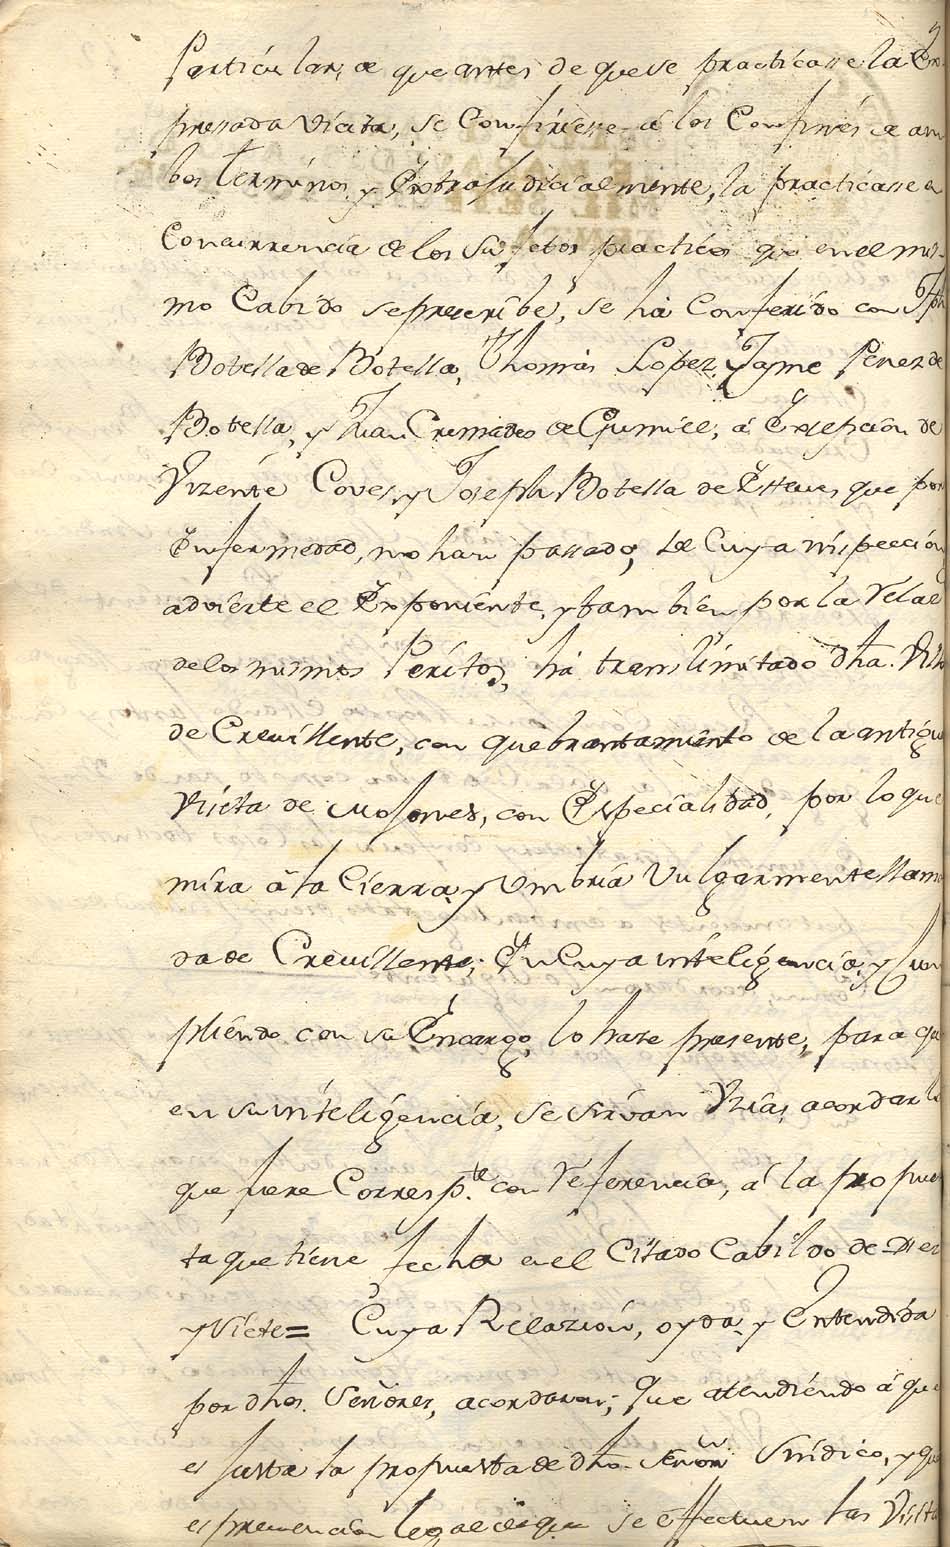 Particular, de que antes de que se practicasse la Ex
presada vicita, se Confiriesse â los Confines de am
bos terminos, y Extrajudicialmente, la practicasse en
Concurrencia de los Sujetos practicos que en el mis
mo Cabildo se prescribe, se há Conferido con Jph
Botella de Botella, Thomás Lopez, Jayme Perez de
Botella, y Juan Cremades de Gumiel, á Exsepción de
Vizente Coves, y Joseph Botella de Esteve, que por
Enfermedad, no han passado, De Cuya inspección
advierte el Exponiente, y tambien por la
de los mismos Peritos, há translimitado dha. Villa
de Crevillente, con quebrantamiento de la antigua
Vicita de Mojones, con Especialidad, por lo que
mira â la Cierra, y Umbria Vulgarmente llama
da de Crevillente; En Cuya inteligencia, y Cum
pliendo con su Encargo, lo haze presente, para que
en su inteligencia, se sirvan Vzias, acordar lo
que fuere Corresp.te con referencia, á la propues
ta que tiene fecha en el Citado Cabildo de Diez
y Ciete= Cuya Relazion, oyda, y Entendida
por dhos. Señores, acordaron; Que atendiendo á que
es justa la propuesta de dho. Señor Sindico, y que
es prevencion legal de que se effectuen las Visitas